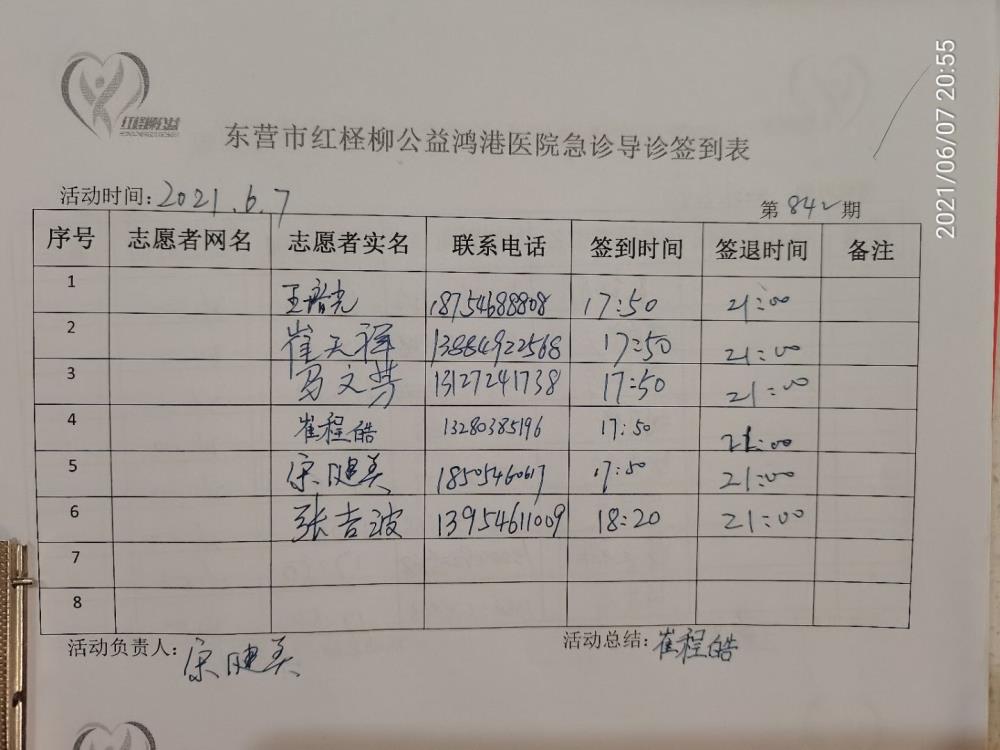 2021/06/07 20:55
红柽柳公益
东营市红柽柳公益鸿港医院急诊导诊签到表
活动时间:2021.6.7 第842期
序号 志愿者网名 志愿者实名 联系电话 签到时间 签退时间 备注
1 王增光 18754688808 17:50 21:00
2 崔天辉 13884922568 17:50 21:00
3 马文芳 13127241738 17:50 21:00
4 崔程皓 13280385196 17:50 21:00
5 宋健美 18505460617 17:50 21:00
6 张吉波 13954611009 18:20 21:00
7
8
活动负责人:宋健美 活动总结:崔程皓